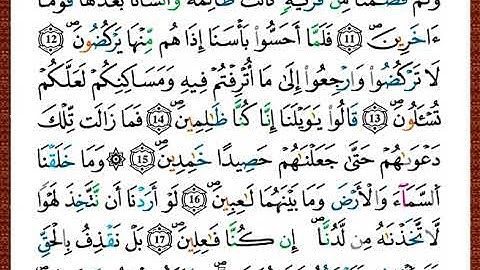 وَكَمْ قَصَمْنَا مِن قَرْيَةٍ كَانَتْ ظَالِمَةً وَأَنشَأْنَا بَعْدَهَا قَوْمًا
ءَاخَرِينَ ﴿11﴾ فَلَمَّآ أَحَسُّوا۟ بَأْسَنَآ إِذَا هُم مِّنْهَا يَرْكُضُونَ ﴿12﴾
لَا تَرْكُضُوا۟ وَٱرْجِعُوٓا۟ إِلَىٰ مَآ أُتْرِفْتُمْ فِيهِ وَمَسَـٰكِنِكُمْ لَعَلَّكُمْ
تُسْـَٔلُونَ ﴿13﴾ قَالُوا۟ يَـٰوَيْلَنَآ إِنَّا كُنَّا ظَـٰلِمِينَ ﴿14﴾ فَمَا زَالَت تِّلْكَ
دَعْوَىٰهُمْ حَتَّىٰ جَعَلْنَـٰهُمْ حَصِيدًا خَـٰمِدِينَ ﴿15﴾ ۞ وَمَا خَلَقْنَا
ٱلسَّمَآءَ وَٱلْأَرْضَ وَمَا بَيْنَهُمَا لَـٰعِبِينَ ﴿16﴾ لَوْ أَرَدْنَآ أَن نَّتَّخِذَ لَهْوًا
لَّٱتَّخَذْنَـٰهُ مِن لَّدُنَّآ إِن كُنَّا فَـٰعِلِينَ ﴿17﴾ بَلْ نَقْذِفُ بِٱلْحَقِّ